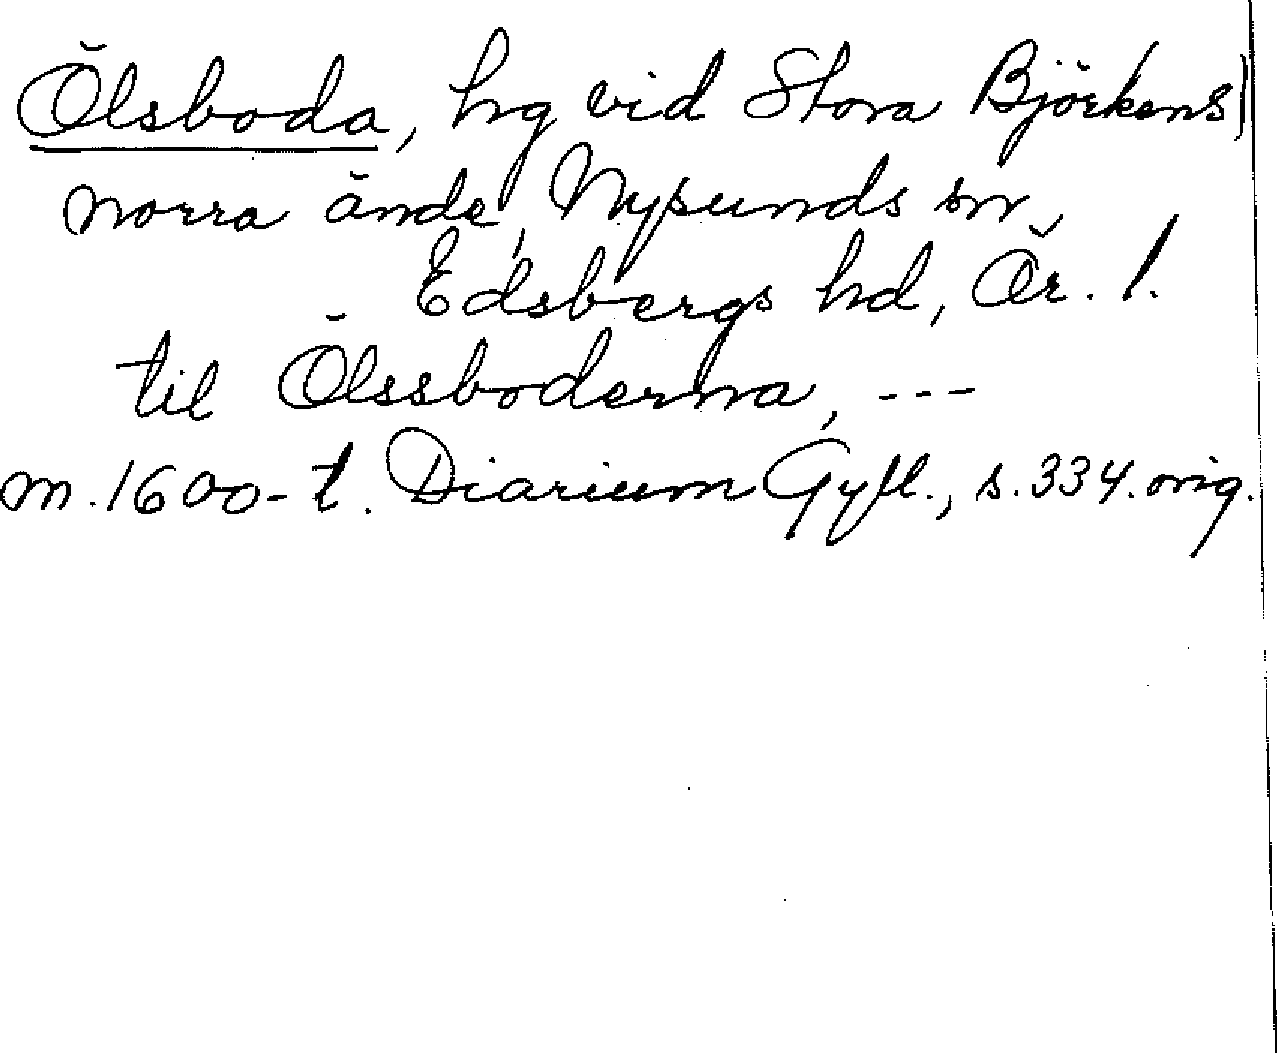 Ölsboda, hg vid Stora Björkens
norra ände, Nysunds sn,
Edsbergs hd, Ör. l.
til Ölssboderna, ---
m. 1600-t. Diarium Gyll., s. 334. orig.